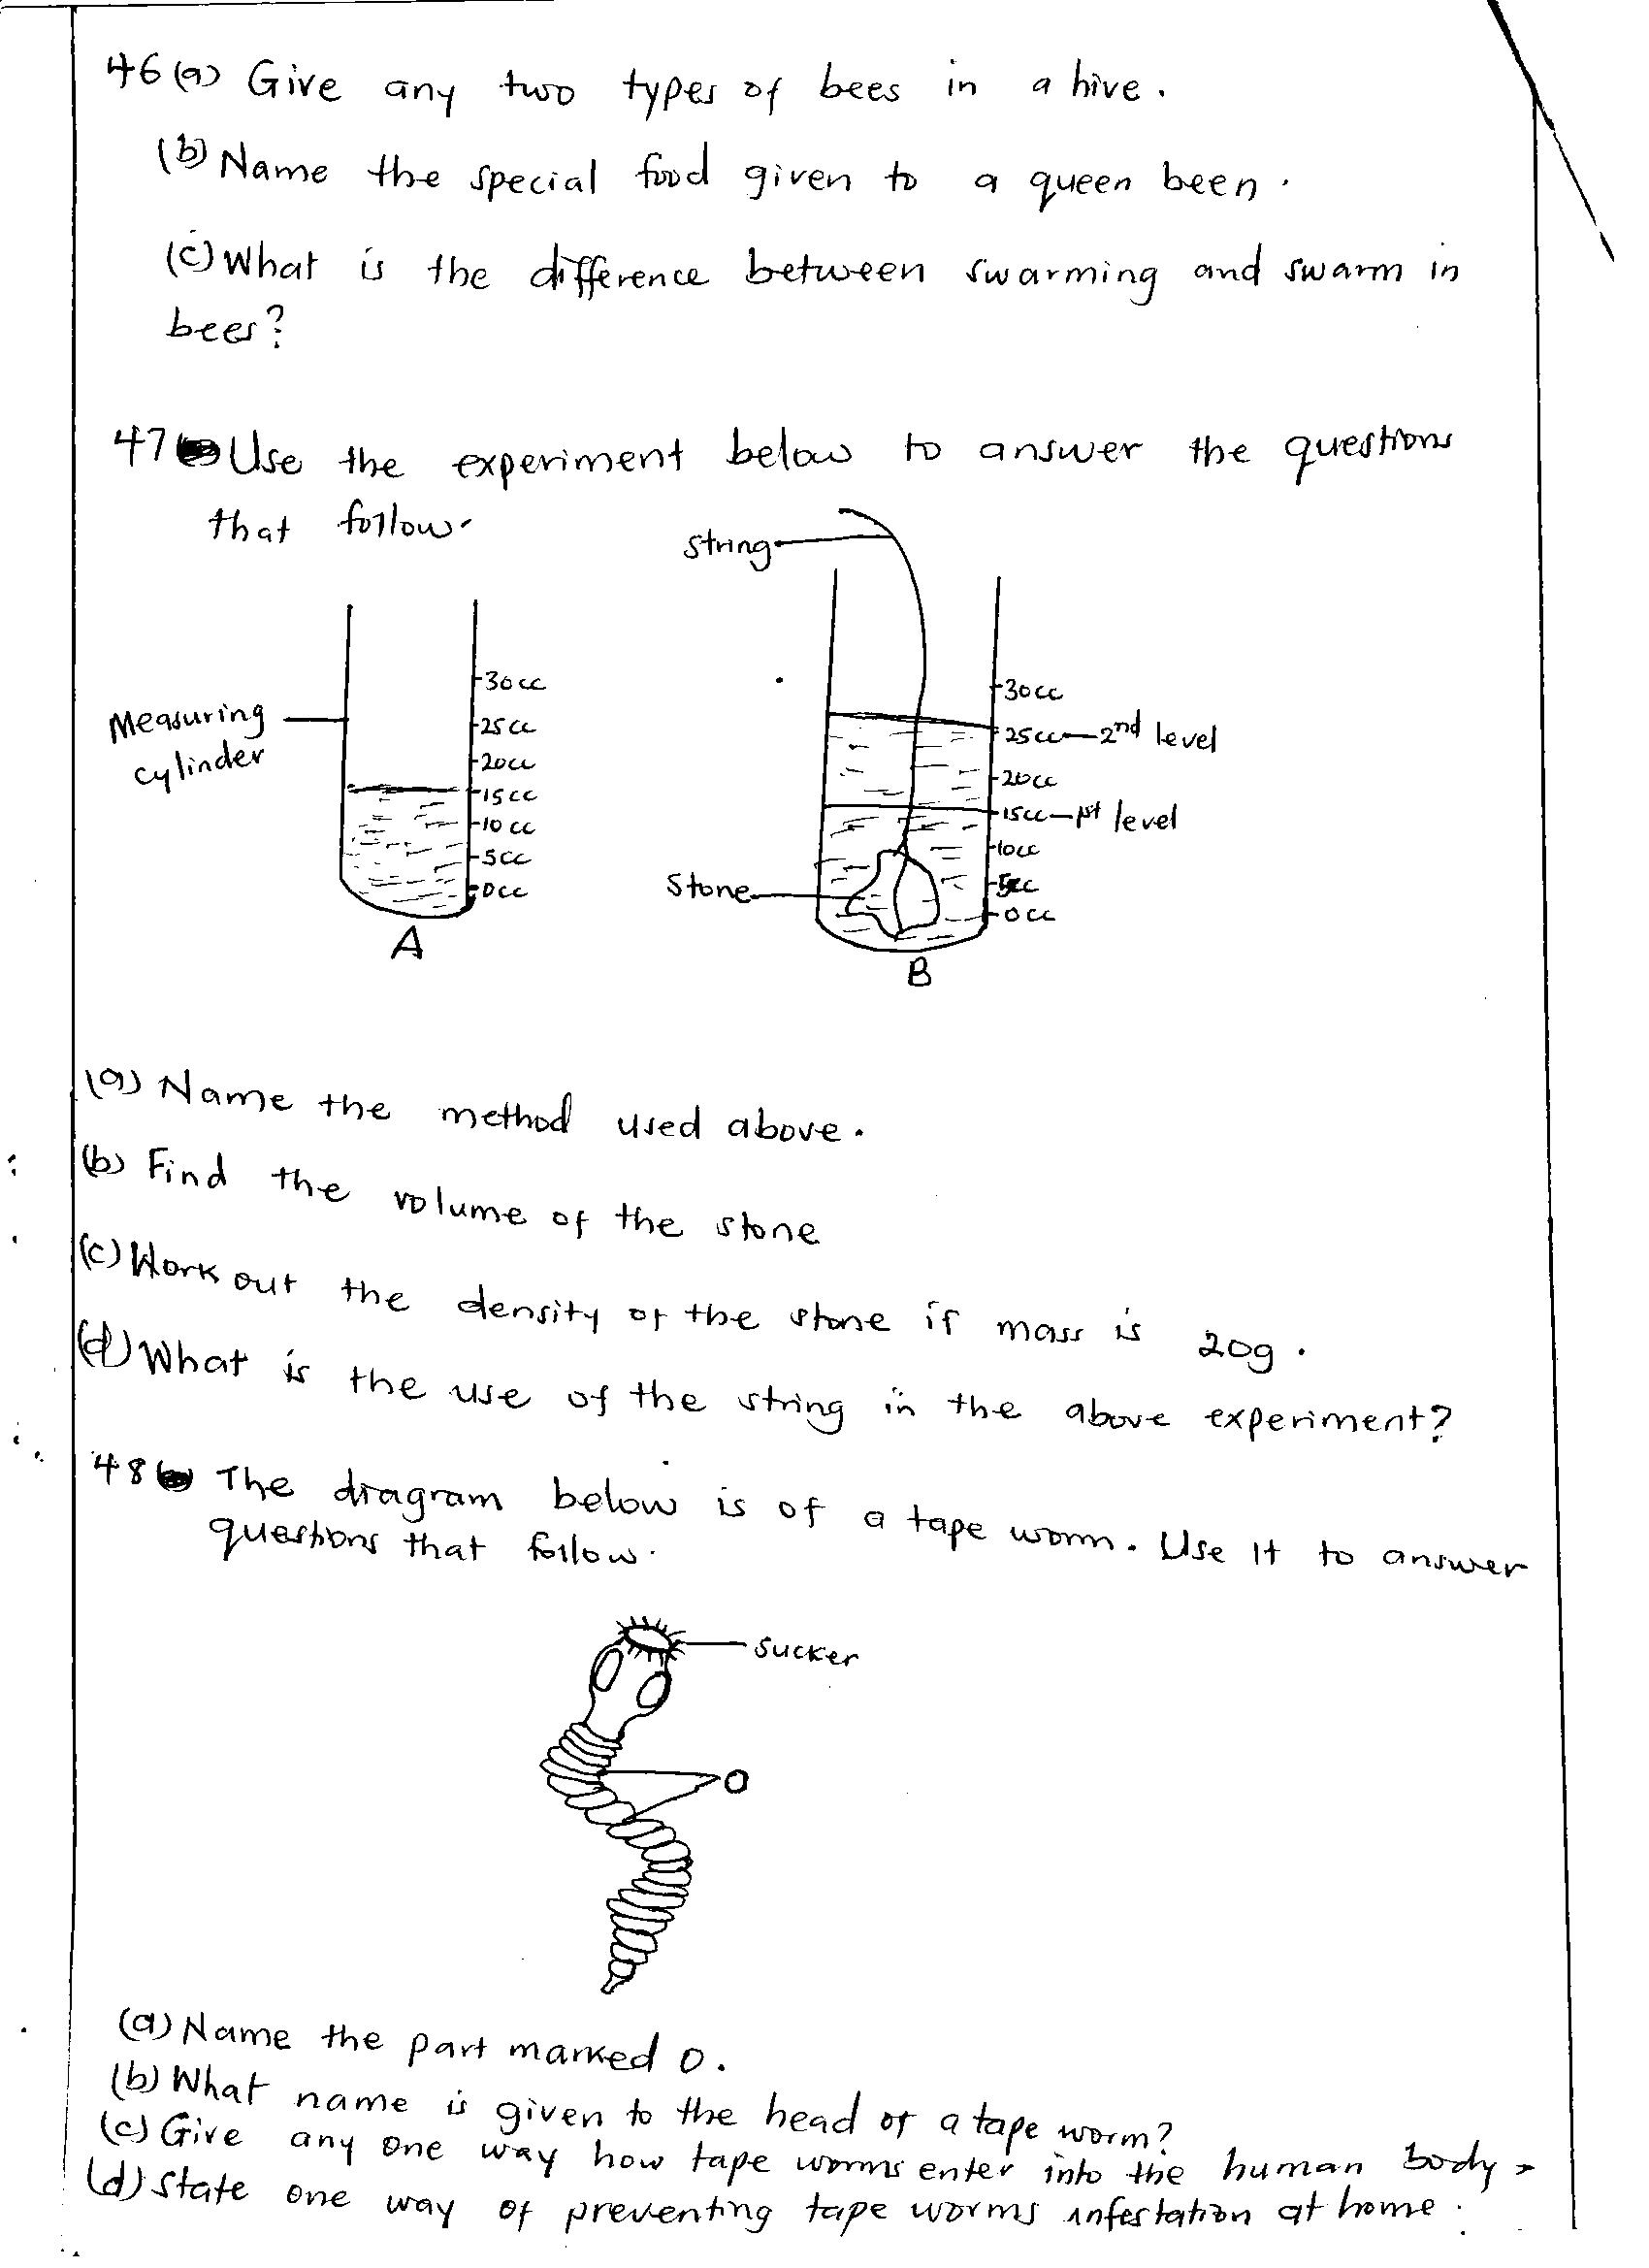 46(a) Give any two types of bees in a hive.
(b) Name the special food given to a queen been.
(c) What is the difference between swarming and swarm in
bees?
47 Use the experiment below to answer the questions
that follow.
String
Measuring
cylinder
30cc
25cc
20cc
15cc
10cc
5cc
0cc
A
30cc
25cc 2nd level
20cc
15cc 1st level
10cc
5cc
0cc
Stone
B
(a) Name the method used above.
(b) Find the volume of the stone
(c) Work out the density of the stone if mass is 20g.
(d) What is the use of the string in the above experiment?
48 The diagram below is of a tape worm. Use it to answer
questions that follow.
sucker
O
(a) Name the part marked O.
(b) What name is given to the head of a tape worm?
(c) Give any one way how tape worms enter into the human body.
(d) State one way of preventing tape worms infestation at home.